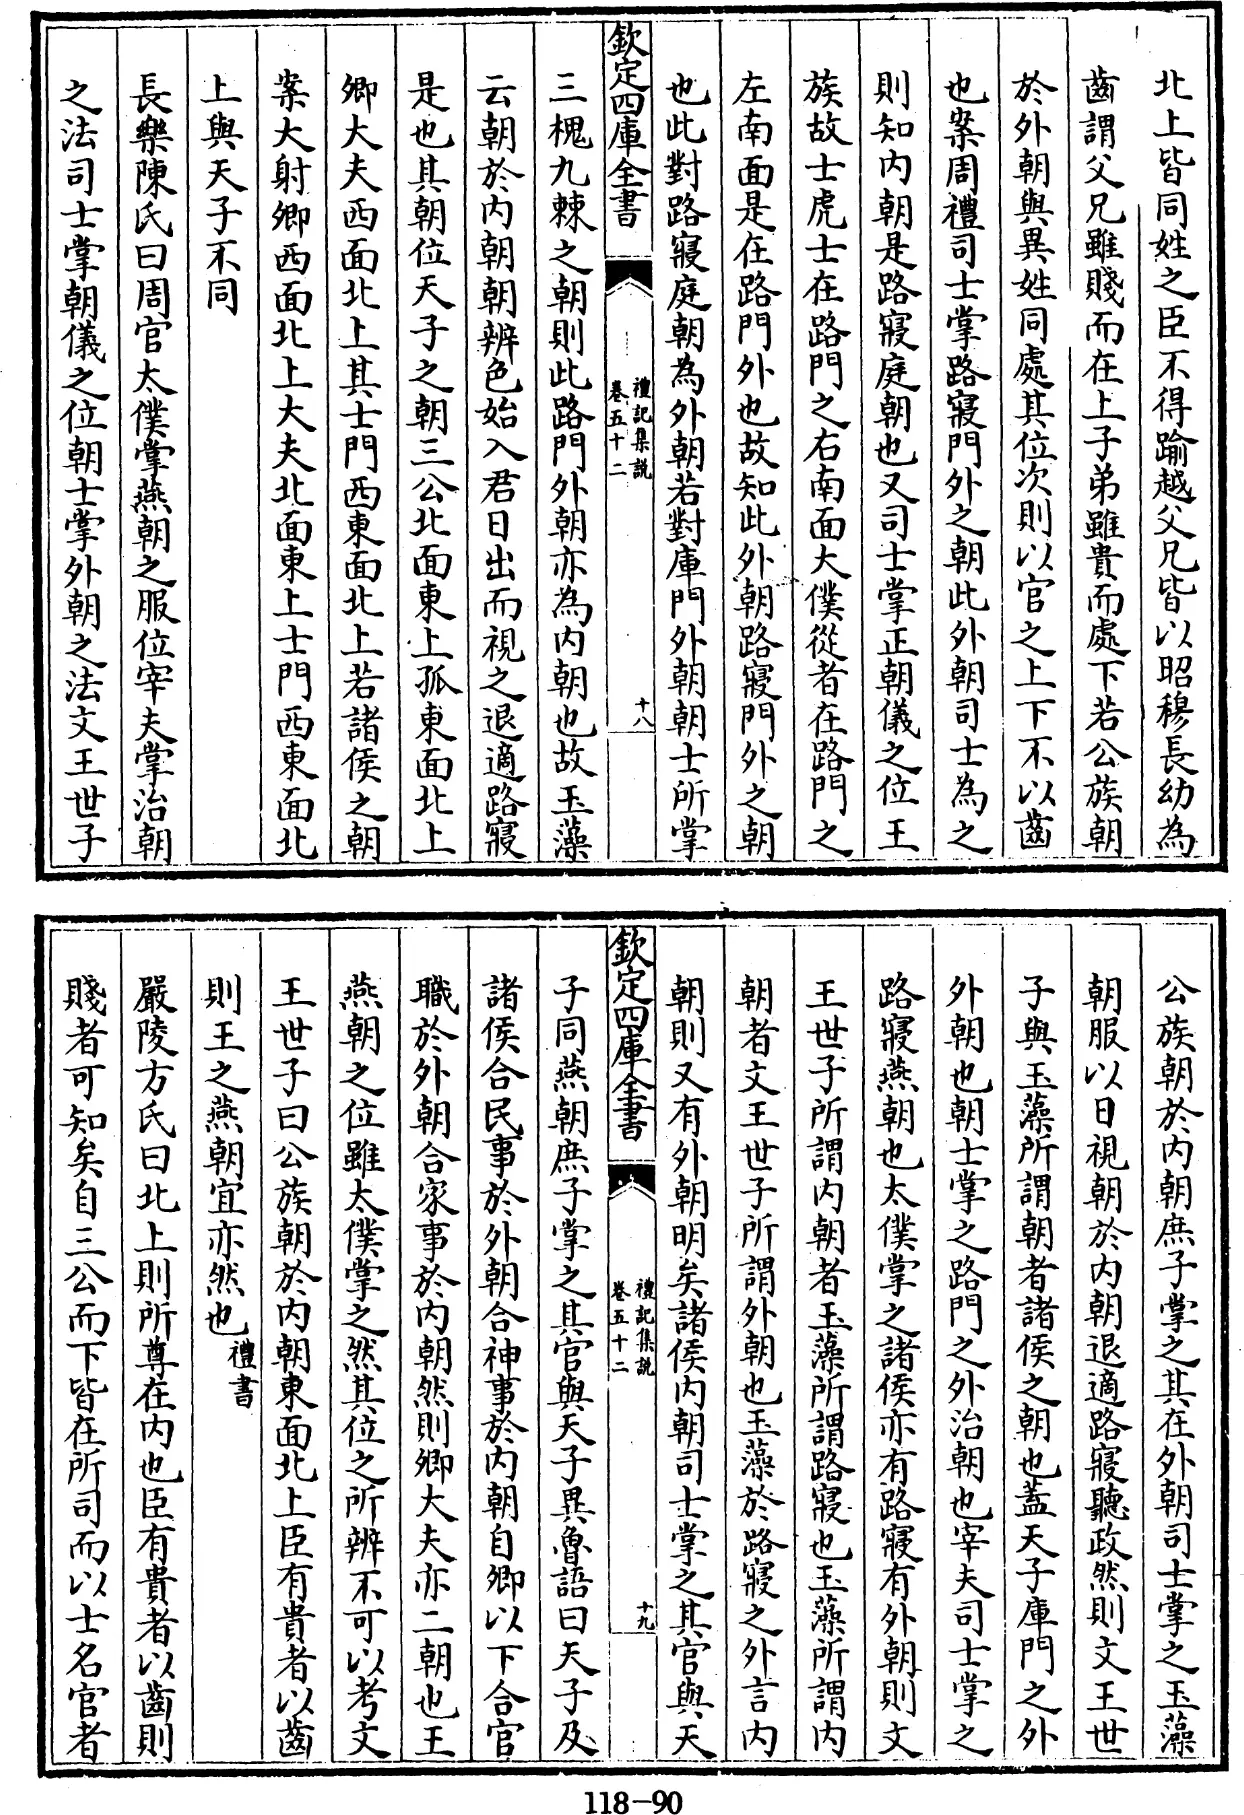 北上皆同姓之臣不得踰越父兄皆以昭穆長幼為
齒謂父兄雖賤而在上子弟雖貴而處下若公族朝
於外朝與異姓同處其位次則以官之上下不以齒
也案周禮司士掌路寢門外之朝此外朝司士為之
則知内朝是路寢庭朝也又司士掌正朝儀之位王
族故士虎士在路門之右南面大僕從者在路門之
左南面是在路門外也故知此外朝路寢門外之朝
也此對路寢庭朝為外朝若對庫門外朝朝士所掌
欽定四庫全書
禮記集説
卷五十二
十八
三槐九棘之朝則此路門外朝亦為内朝也故玉藻
云朝於内朝朝辨色始入君日出而視之退適路寢
是也其朝位天子之朝三公北面東上孤東面北上
卿大夫西面北上其士門西東面北上若諸侯之朝
案大射卿西面北上大夫北面東上士門西東面北
上與天子不同
長樂陳氏曰周官太僕掌燕朝之服位宰夫掌治朝
之法司士掌朝儀之位朝士掌外朝之法文王世子
公族朝於内朝庶子掌之其在外朝司士掌之玉藻
朝服以日視朝於内朝退適路寢聽政然則文王世
子與玉藻所謂朝者諸侯之朝也蓋天子庫門之外
外朝也朝士掌之路門之外治朝也宰夫司士掌之
路寢燕朝也太僕掌之諸侯亦有路寢有外朝則文
王世子所謂内朝者玉藻所謂路寢也玉藻所謂内
朝者文王世子所謂外朝也玉藻於路寢之外言内
朝則又有外朝明矣諸侯内朝司士掌之其官與天
欽定四庫全書
禮記集説
卷五十二
十九
子同燕朝庶子掌之其官與天子異魯語曰天子及
諸侯合民事於外朝合神事於内朝自卿以下合官
職於外朝合家事於内朝然則卿大夫亦二朝也王
燕朝之位雖太僕掌之然其位之所辨不可以考文
王世子曰公族朝於内朝東面北上臣有貴者以齒
則王之燕朝宜亦然也禮書
嚴陵方氏曰北上則所尊在内也臣有貴者以齒則
賤者可知矣自三公而下皆在所司而以士名官者
118-90